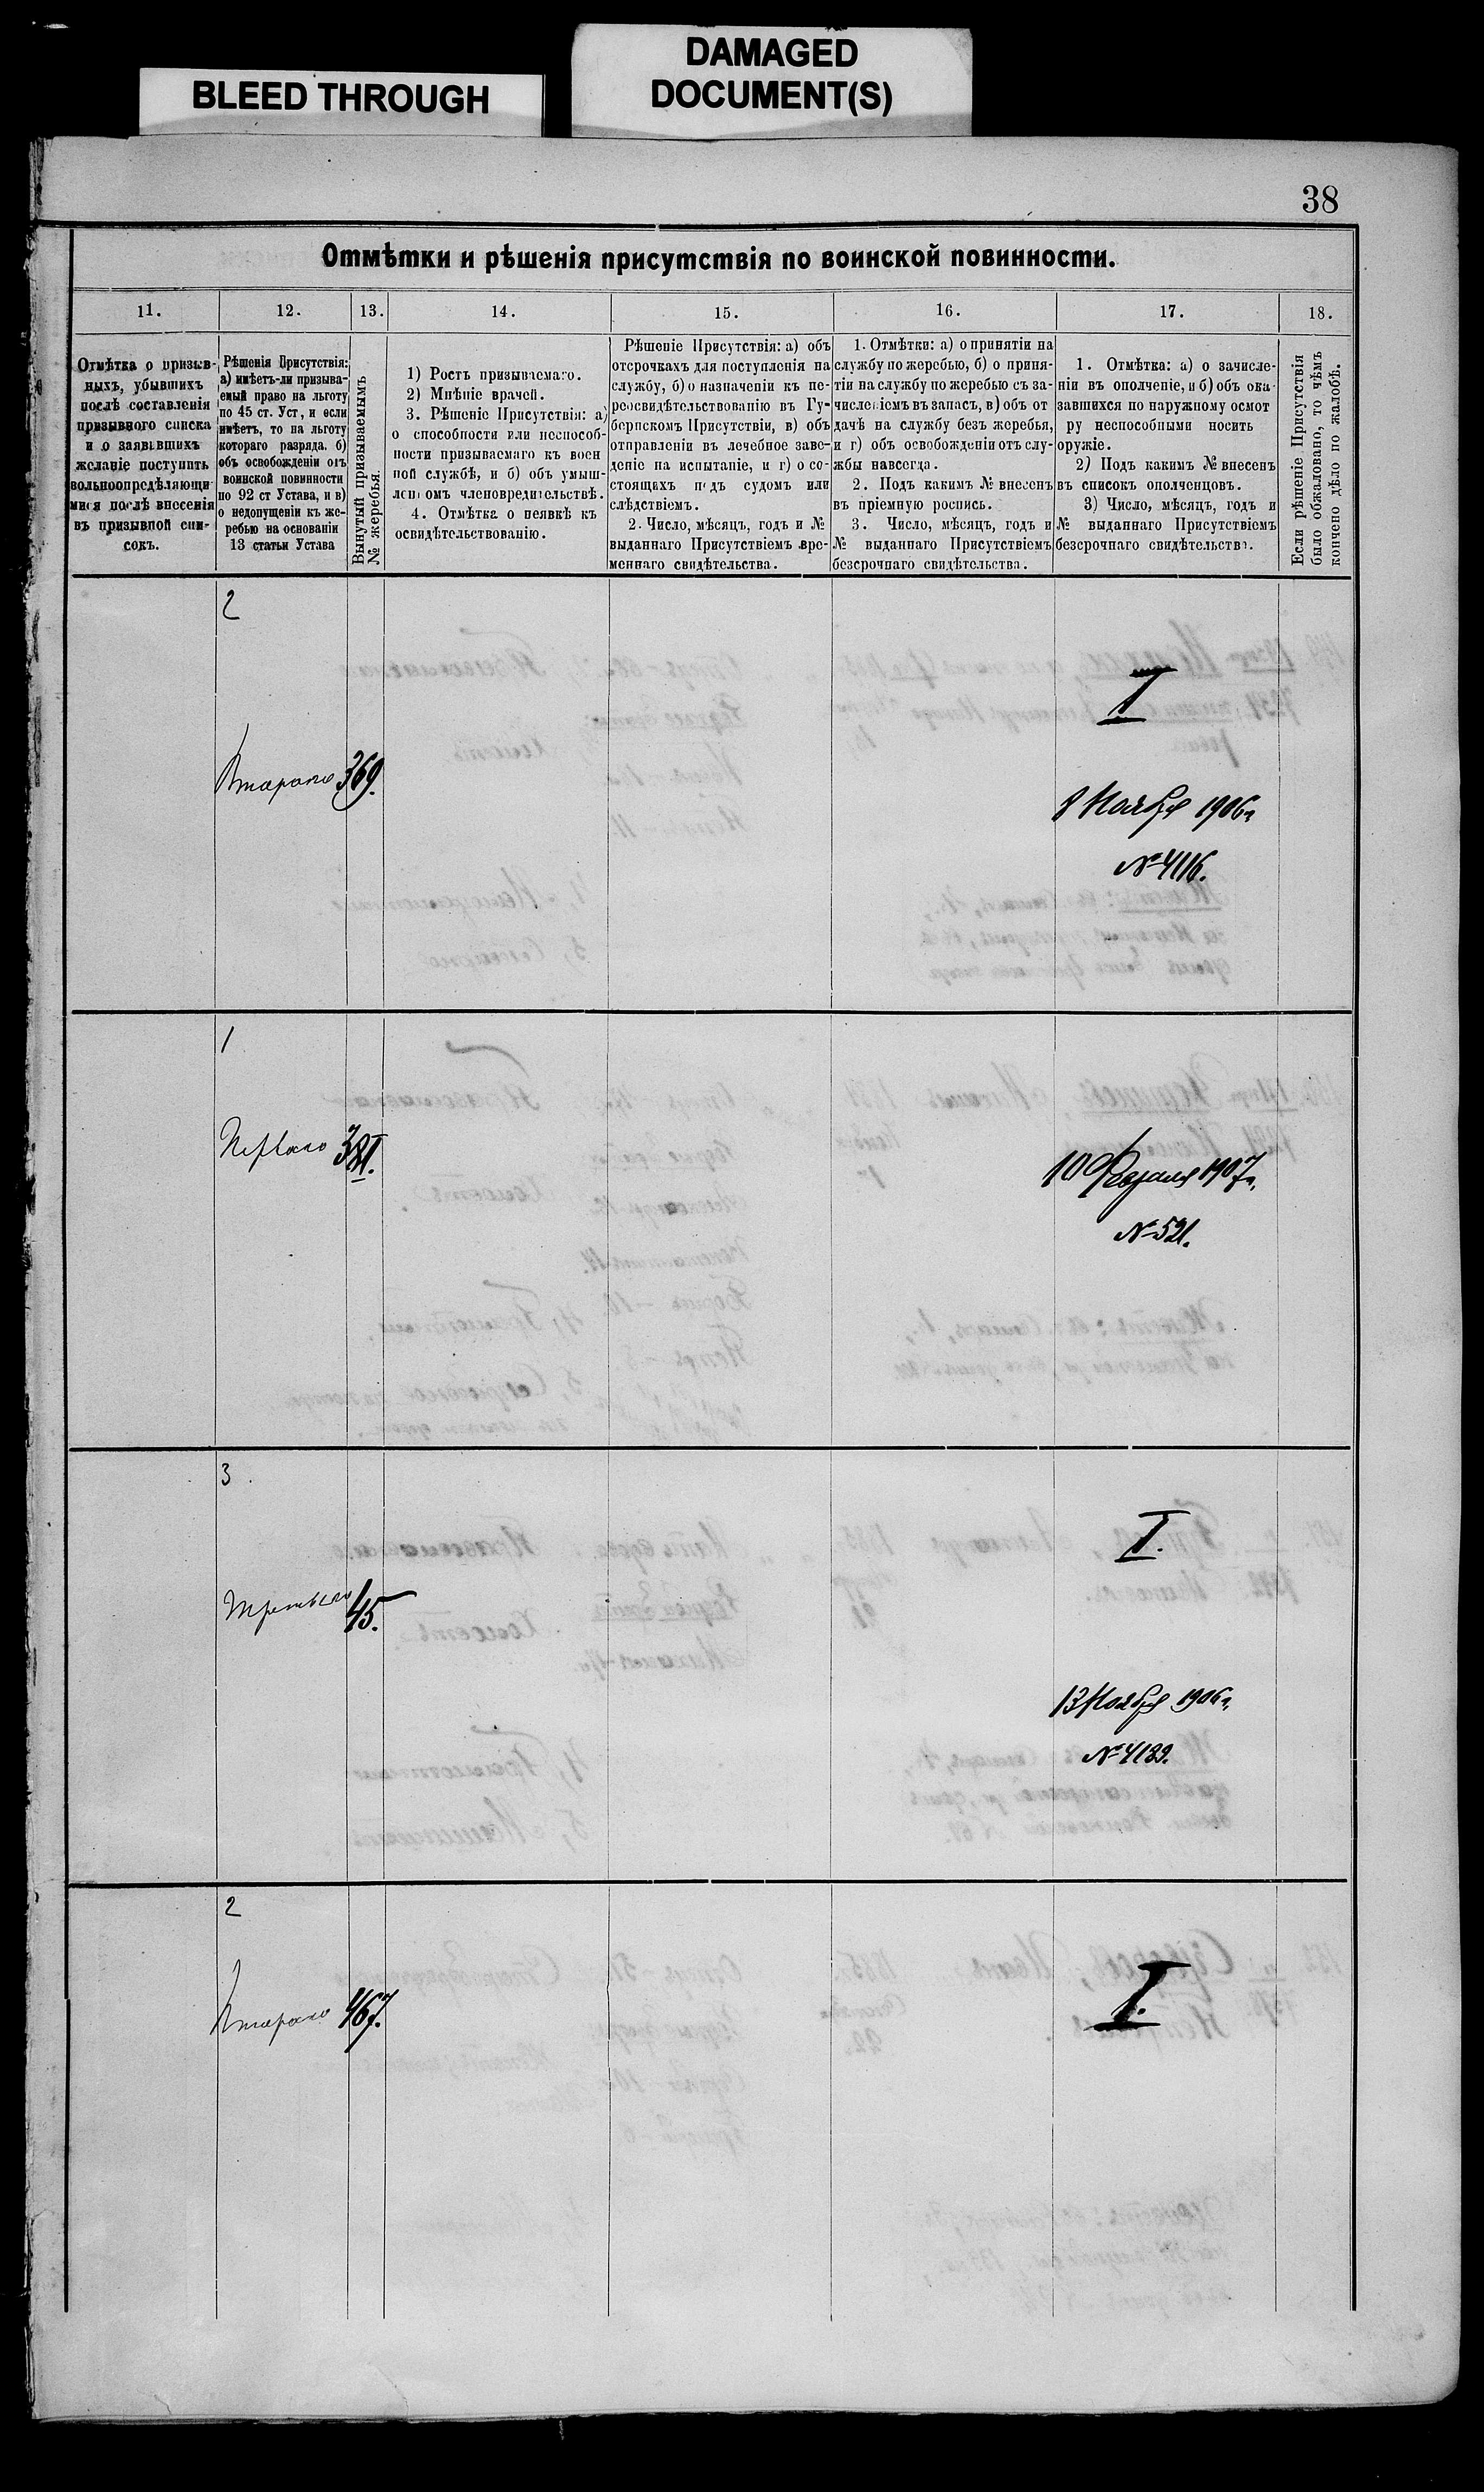 BLEED THROUGH
DAMAGED
DOCUMENT(S)
38
Отмѣтки и рѣшенія присутствія по воинской повинности.
11.
12.
13.
14.
15.
16.
17.
18.
Отмѣтка о призыв-
ныхъ, убывшихъ
послѣ составленія
призывного списка
и о заявившихъ
желаніе поступить
вольноопредѣляющи
мися послѣ внесенія
въ призывной спи-
сокъ.
Рѣшенія Присутствія:
а) имѣетъ-ли призыва-
емый право на льготу
по 45 ст. Уст, и если
имѣетъ, то на льготу
котораго разряда. б)
объ освобожденіи отъ
воинской повинности
по 92 ст Устава, и в)
о недопущеніи къ же-
ребью на основаніи
13 статьи Устава
Вынутый призываемымъ
№ жеребья.
1) Ростъ призываемаго.
2) Мнѣніе врачей.
3. Рѣшеніе Присутствія: а)
о способности или неспособ-
ности призываемаго къ воен
ной службѣ, и б) объ умыш-
леномъ членовредительствѣ.
4. Отмѣтка о неявкѣ къ
освидѣтельствованію.
Рѣшеніе Присутствія: а) объ
отсрочкахъ для поступленія на
службу, б) о назначеніи къ пе-
реосвидѣтельствованію въ Гу-
бернскомъ Присутствіи, в) объ
отправленіи въ лечебное заве-
деніе на испытаніе, и г) о со-
стоящихъ подъ судомъ или
слѣдствіемъ.
2. Число, мѣсяцъ, годъ и №
выданнаго Присутствіемъ вре-
меннаго свидѣтельства.
1. Отмѣтки: а) о принятіи на
службу по жеребью, б) о приня-
тіи на службу по жеребью съ за-
численіемъ въ запасъ, в) объ от
дачѣ на службу безъ жеребья,
и г) объ освобожденіи отъ слу-
жбы навсегда.
2. Подъ какимъ № внесенъ
въ пріемную роспись.
3. Число, мѣсяцъ, годъ и
№ выданнаго Присутствіемъ
безсрочнаго свидѣтельства.
1. Отмѣтка: а) о зачисле-
ніи въ ополченіе, и б) объ ока
завшихся по наружному осмот
ру неспособными носить
оружіе.
2) Подъ какимъ № внесенъ
въ списокъ ополченцовъ.
3) Число, мѣсяцъ, годъ и
№ выданнаго Присутствіемъ
безсрочнаго свидѣтельства.
Если рѣшеніе Присутствія
было обжаловано, то чѣмъ
кончено дѣло по жалобѣ.
2
I
Втораго 369.
8 Ноября 1906 г.
№ 4116.
1
Перваго 381.
10 Февраля 1907 г.
№ 521.
3
I.
Третьяго 45.
13 Ноября 1906 г.
№ 4139.
2
Втораго 467.
I.